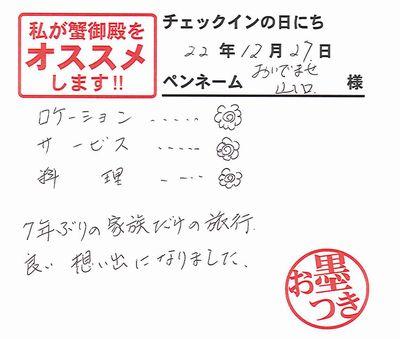 私が蟹御殿を
オススメ
します!!
チェックインの日にち
22年12月27日
ペンネーム おいでませ山口 様
ロケーション ・・・・・
サービス ・・・・・
料理 ・・・・
7年ぶりの家族だけの旅行.
良い想い出になりました、
お墨つき